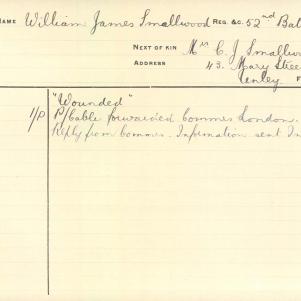 NAME William James Smallwood REG. &C. 52nd Bat
NEXT OF KIN Mrs C. J. Smallwoo
ADDRESS 43. Mary Stree
Henley F
"Wounded"
1/P P/Cable forwarded Commrs London.
Reply from Commrs. Information sent In